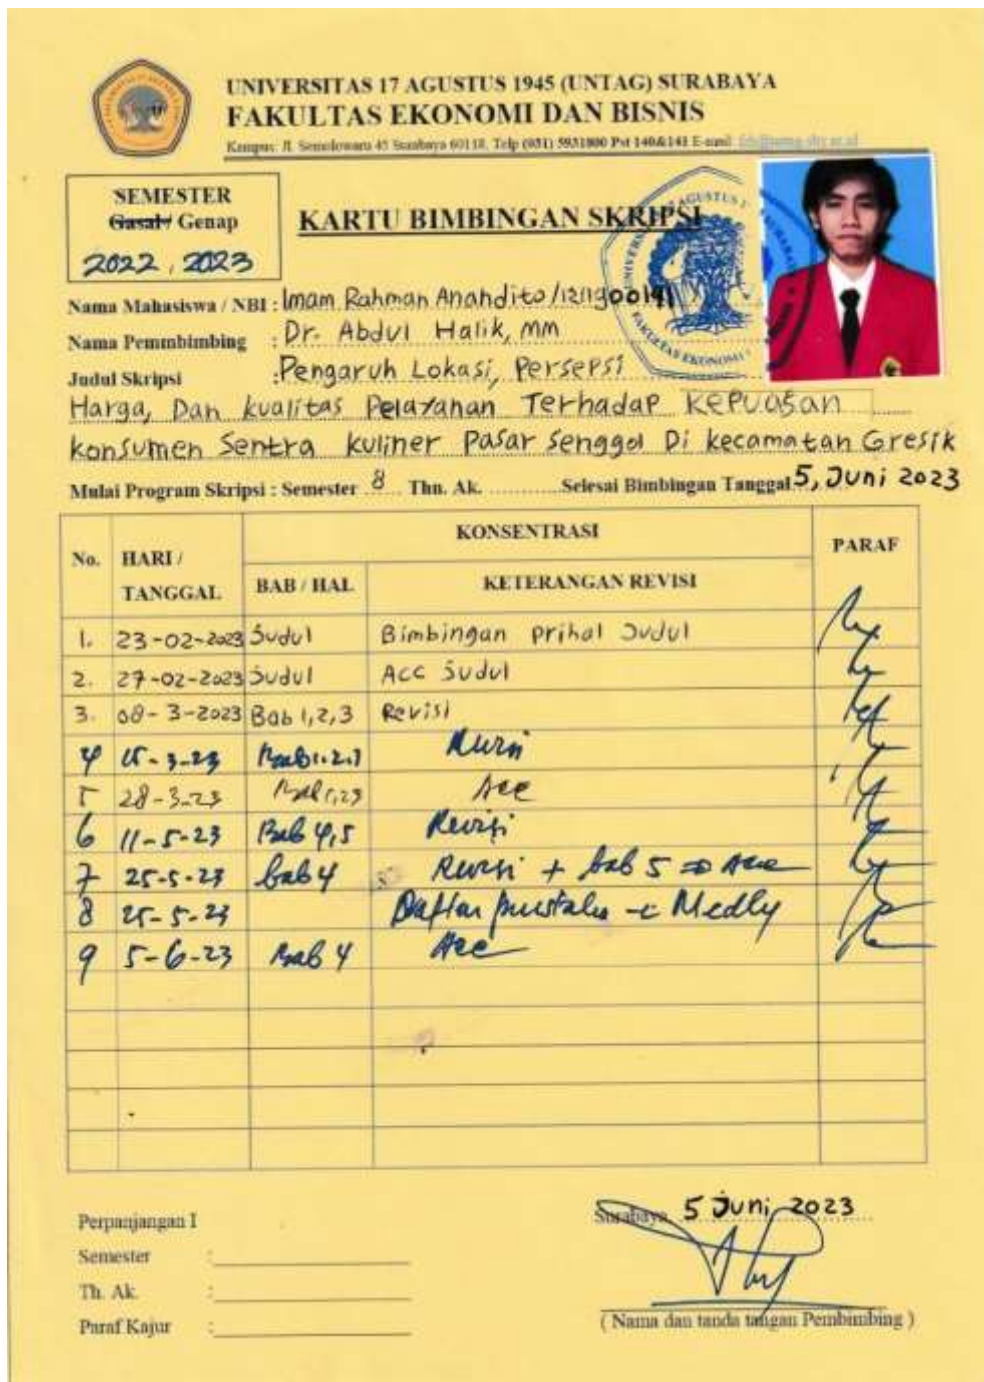 UNIVERSITAS 17 AGUSTUS 1945 (UNTAG) SURABAYA
FAKULTAS EKONOMI DAN BISNIS
Kampus: Jl. Semolowaru 45 Surabaya 60118, Telp (031) 5931800 Pst 140&141 E-mail:
SEMESTER
Gasal / Genap
2022, 2023
KARTU BIMBINGAN SKRIPSI
Nama Mahasiswa / NBI : Imam Rahman Anandito /1211900141
Nama Pemmbimbing : Dr. Abdul Halik, MM
Judul Skripsi : Pengaruh Lokasi, Persepsi
Harga, Dan kualitas Pelayanan Terhadap Kepuasan
konsumen Sentra kuliner Pasar Senggol Di kecamatan Gresik
Mulai Program Skripsi : Semester 8 Thn. Ak. ............ Selesai Bimbingan Tanggal 5, Juni 2023
KONSENTRASI
No. HARI / TANGGAL BAB / HAL KETERANGAN REVISI PARAF
1. 23-02-2023 Judul Bimbingan prihal Judul
2. 27-02-2023 Judul Acc Judul
3. 08-3-2023 Bab 1,2,3 Revisi
4 15-3-23 Bab 1.2.3 Revisi
5 28-3-23 Bab 1,23 Acc
6 11-5-23 Bab 4,5 Revisi
7 25-5-23 bab 4 Revisi + bab 5 ⇒ Acc
8 25-5-23 Daftar pustaka
9 5-6-23 Bab 4 Acc
Perpanjangan I
Semester :
Th. Ak. :
Paraf Kajur :
Surabaya, 5 Juni 2023
( Nama dan tanda tangan Pembimbing )